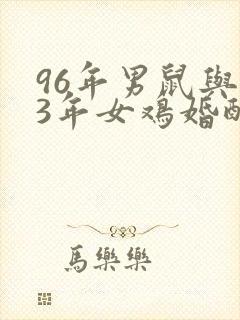 96年男鼠與
3年女鳮婚
馬樂樂